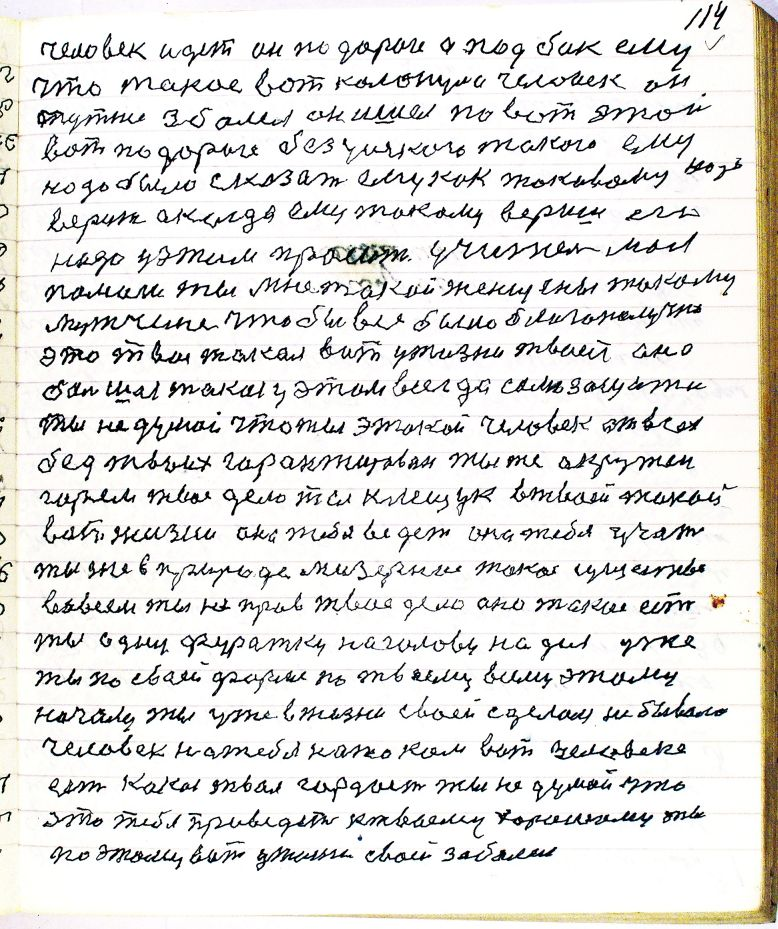 114
человек идет он по дороге а под бок ему
что такое вот кальнула человек он
тутже заболел он ишел по вот этой
вот по дороге без усякого такого ему
надо было сказат ему как таковому
верит а когда ему такому вериш его
надо у этом просит учител мол
помоги ты мне такой женщены такому
мутчене чтобы все было благополучно
это твоя такая вот ужизни твоей она
болшая такая у этом всегда самозащита
ты недумай что ты этакой человек от всех
бед твоих гарантирован ты же окружен
горем твое дело тел клещук в твоей такой
вот жизни она тебя ведет она тебя учат
ты же в природе мизерное такое существо
вовсем ты не прав твое дело оно такое ест
ты одну фуражку наголову надел уже
ты по своей форме по твоему всему этому
началу ты уже в жизни своей сделал небывало
человек на тебя как на таком вот человеке
ест какая твая гордост ты не думай что
это тебя приведет к твоему хорошому ты
по этому вот ужизни своей заболел